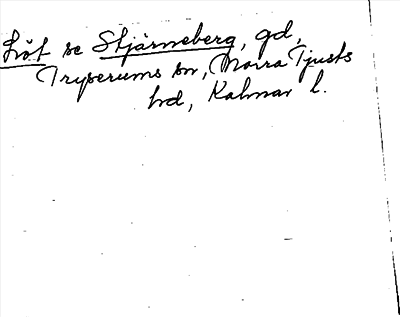 Löt se Stjärneberg, gd,
Tryserums sn, Norra Tjusts
hd, Kalmar l.